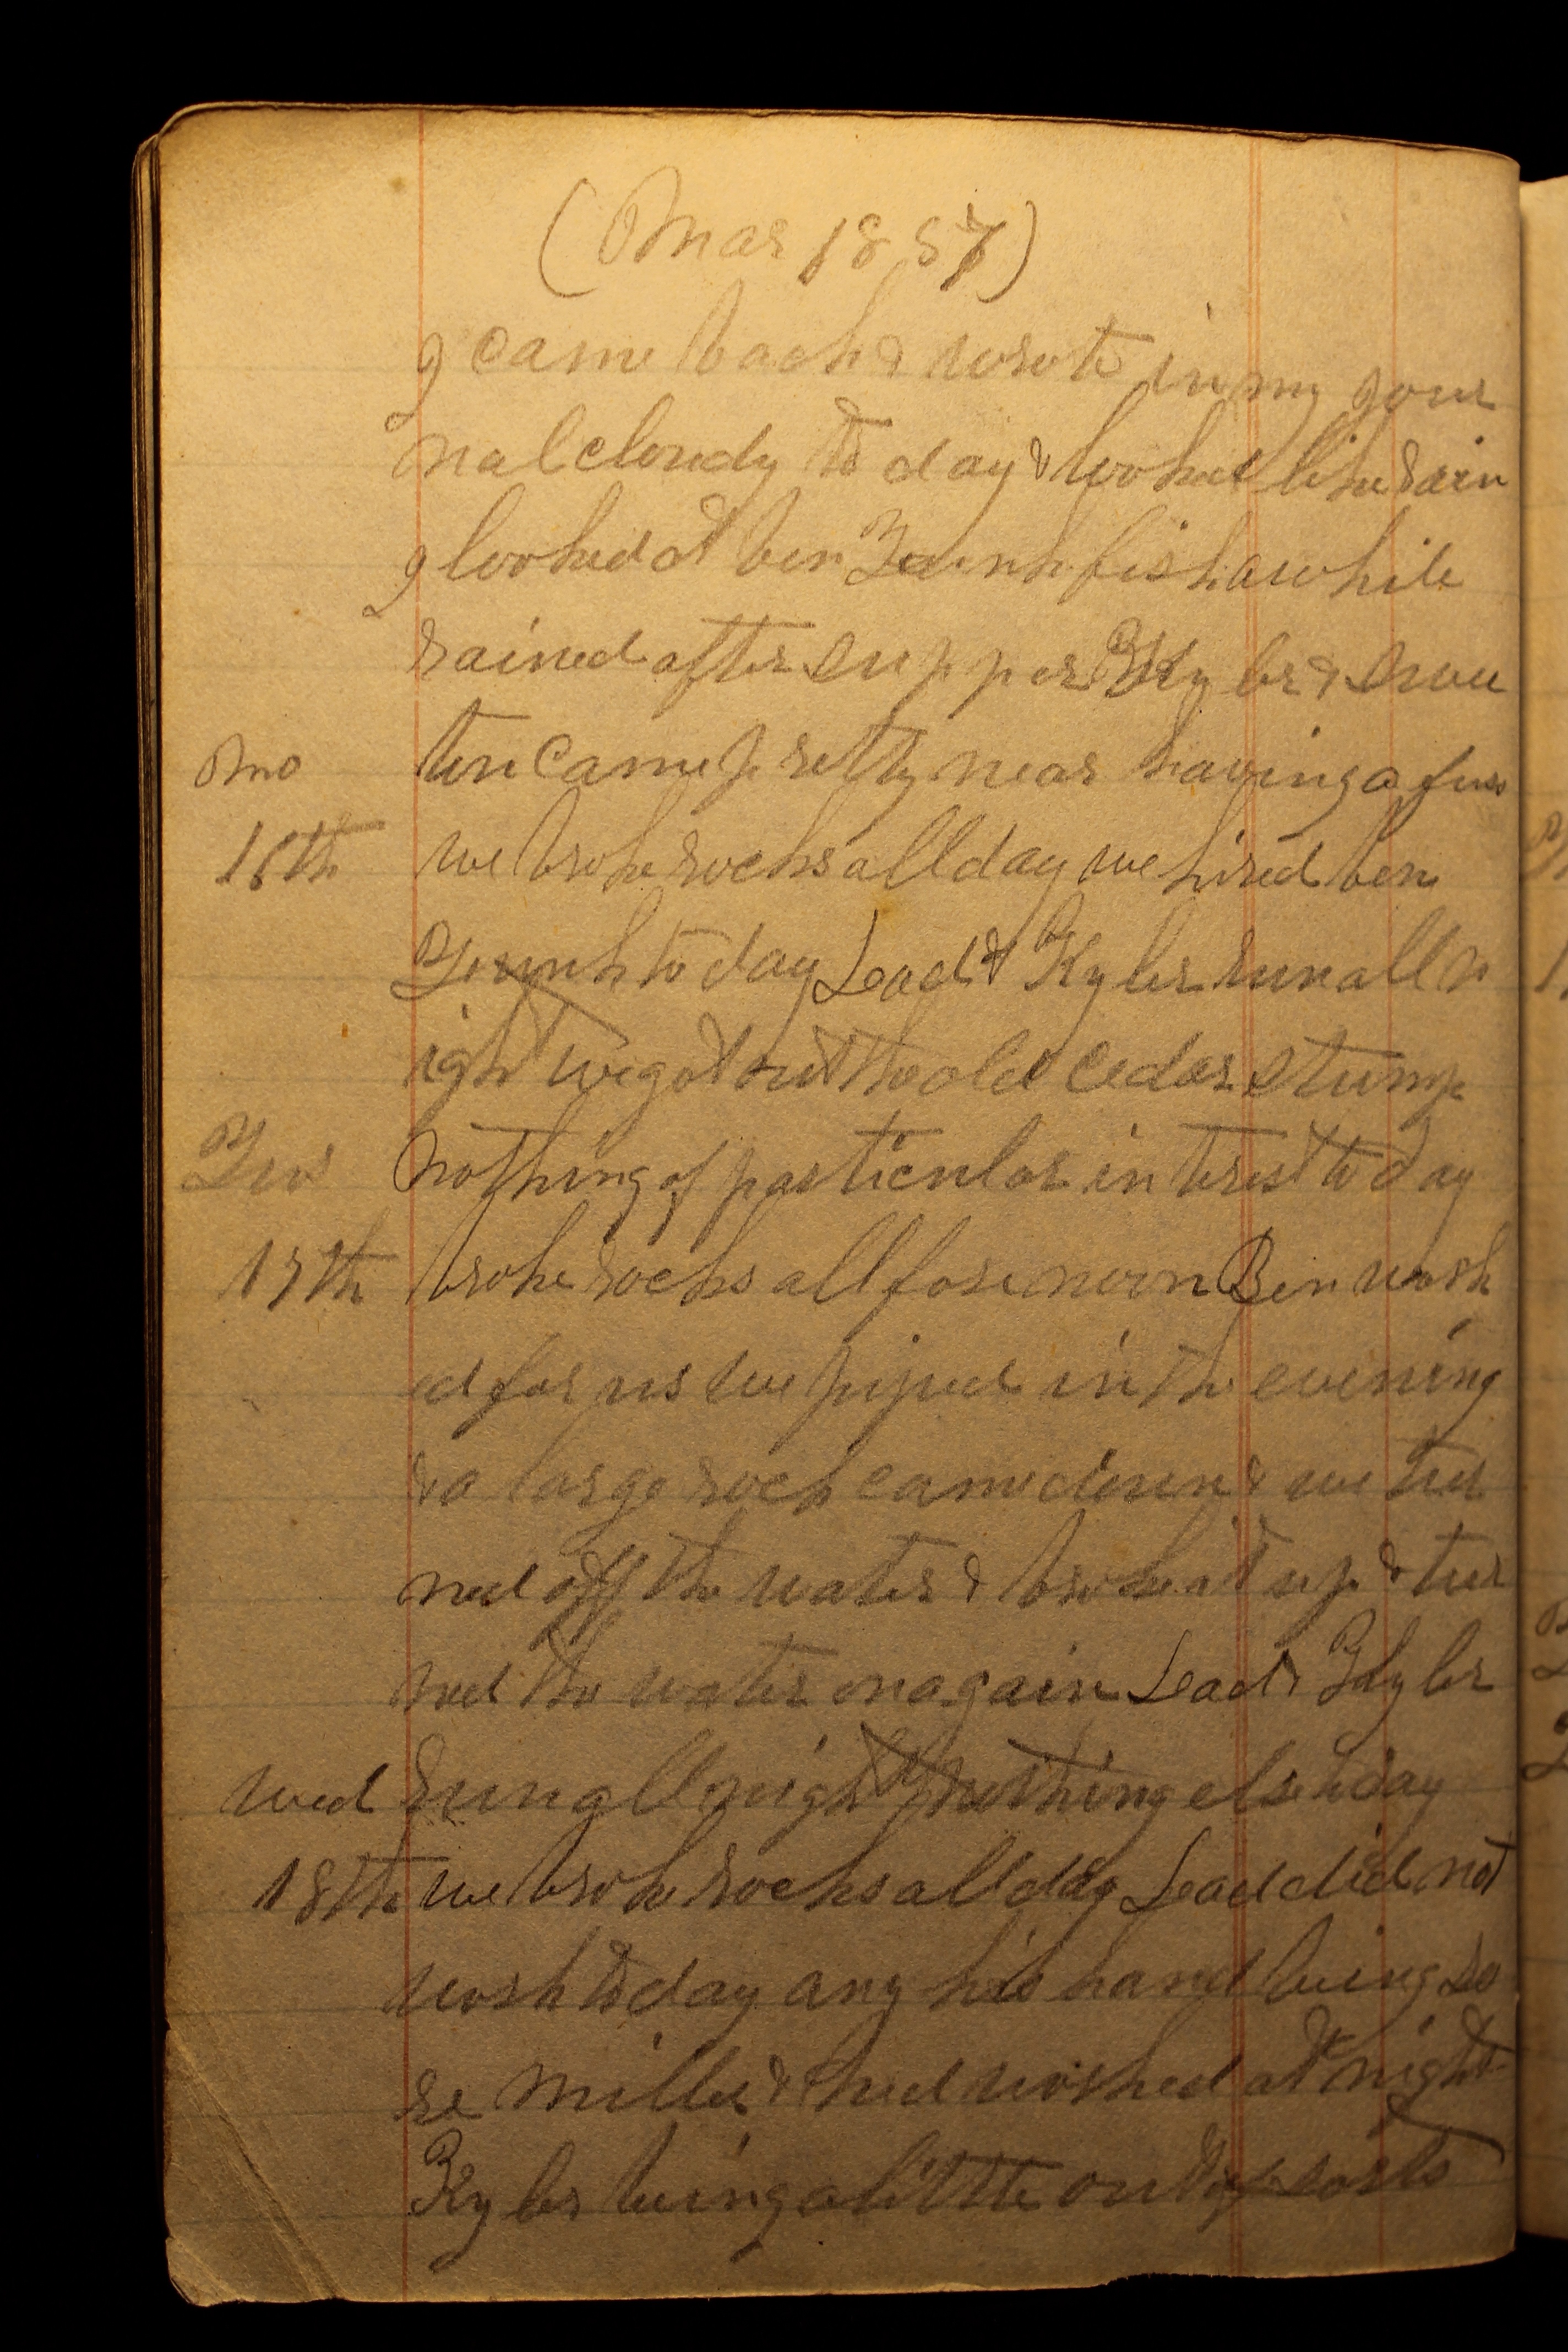 (Mar 1857)
I came back & wrote in my jour
nal cloudy to day & looked like rain
I looked at ben fish awhile
rained after supper Kyler &
ten came pretty near having a fuss
Mo
16th we broke rocks all day we hired ben
to day Lead & Kyler run all n
ight we got out the old ceder stump
Tus nothing of particular interest to day
17th broke rocks all forenoon Ben work
ed for us we piped in the evening
& a large rock came down & we tur
ned off the water & broke it up & tur
ned the water on again Lead & Kyler
Wed run all night nothing else to day
18th we broke rocks all day Lead did not
work to day any his hand being so
re Miller & hud worked at night
Kyler being a little out of sorts